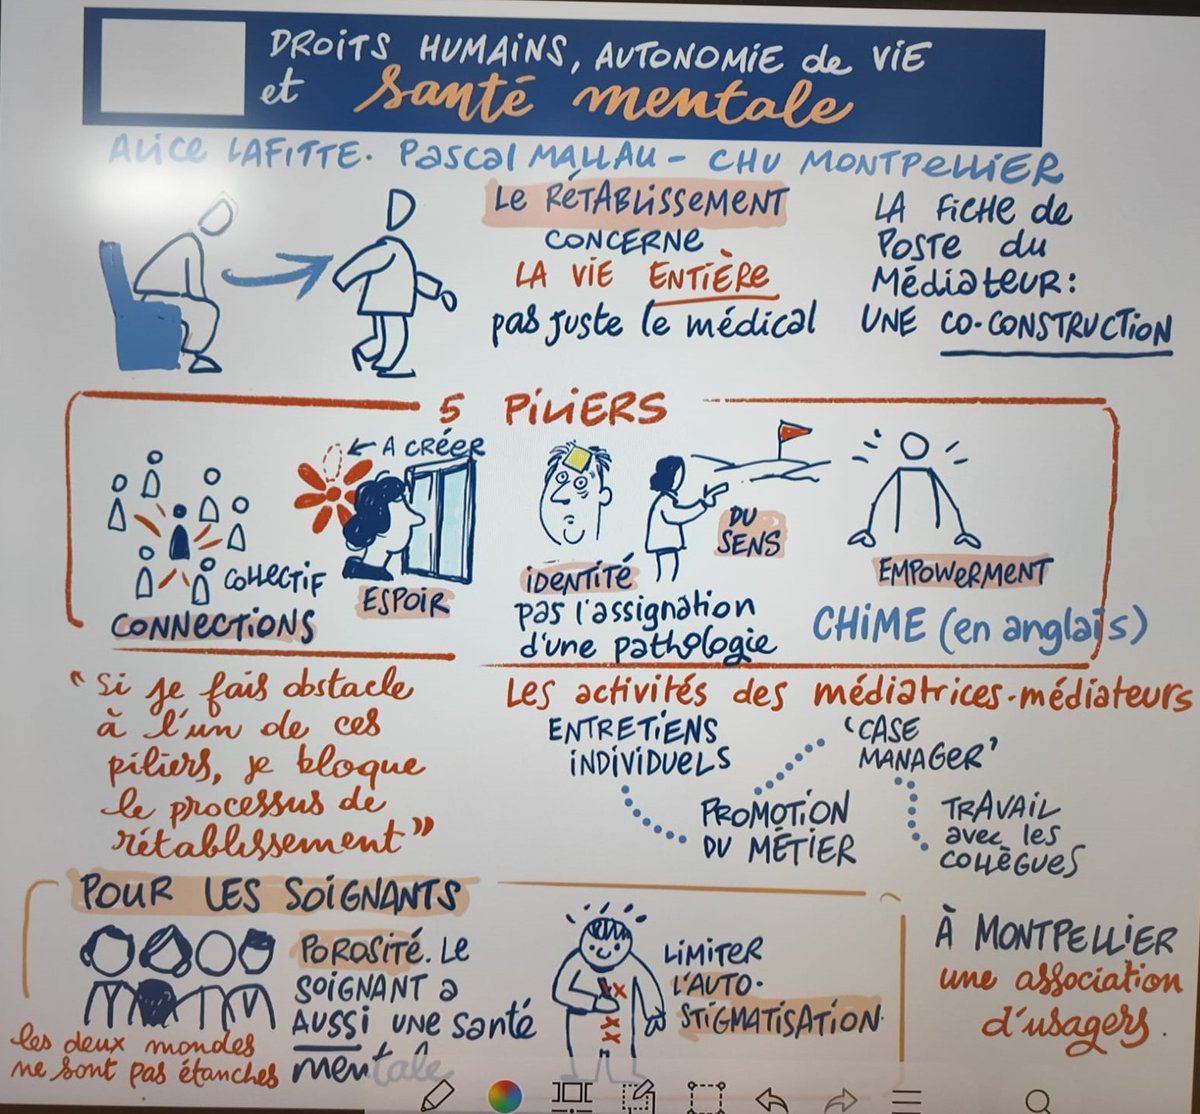 DROITS HUMAINS, AUTONOMIE de VIE
et santé mentale
ALICE LAFITTE. PASCAL MALLAU - CHU MONTPELLIER
LE RÉTABLISSEMENT
CONCERNE
LA VIE ENTIÈRE
pas juste le médical
LA FICHE de
POSTE du
MÉDIATEUR:
UNE CO-CONSTRUCTION
5 PILIERS
COLLECTIF
CONNECTIONS
A CRÉER
ESPOIR
IDENTITÉ
pas l'assignation
d'une pathologie
DU
SENS
EMPOWERMENT
CHIME (en anglais)
"Si je fais obstacle
à l'un de ces
piliers, je bloque
le processus de
rétablissement"
Les activités des médiatrices-médiateurs
ENTRETIENS
INDIVIDUELS
'CASE
MANAGER'
PROMOTION
DU MÉTIER
TRAVAIL
avec les
COLLÈGUES
POUR LES SOIGNANTS
les deux mondes
ne sont pas étanches
POROSITÉ. LE
SOIGNANT a
AUSSI UNE santé
mentale
LIMITER
L'AUTO-
STIGMATISATION
À MONTPELLIER
une association
d'usagers.